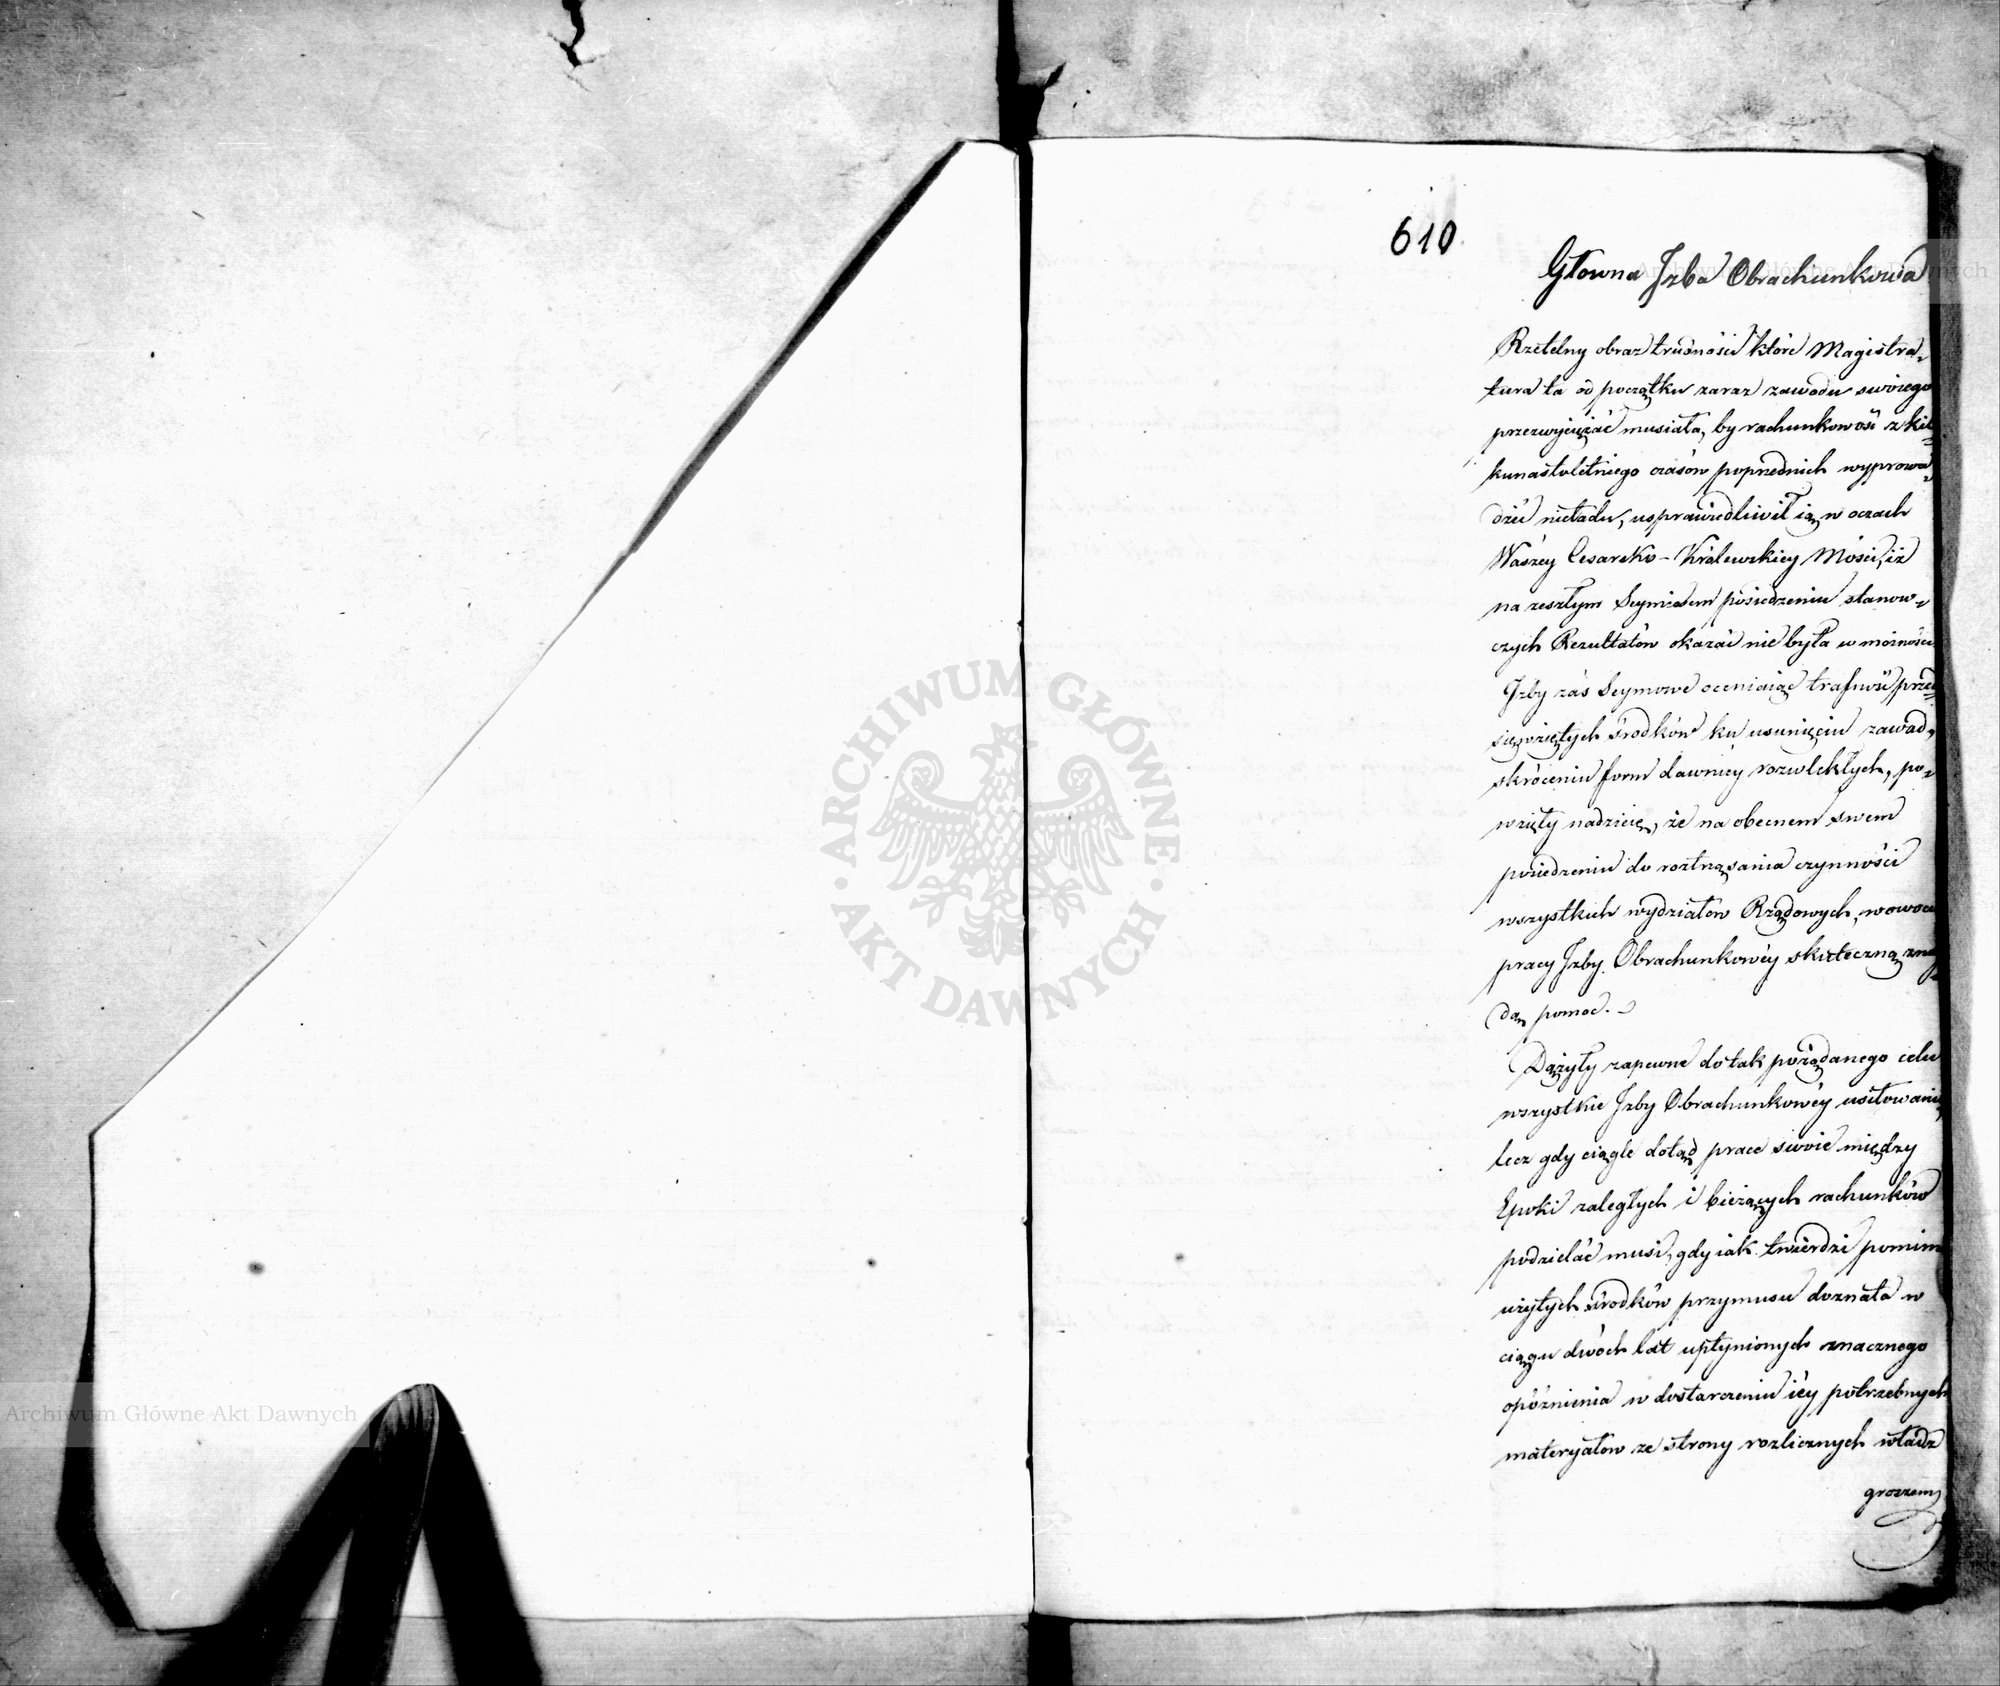 610
Głowna Jzba Obrachunkowa
Rzetelny obraz trudności które Magistra-
tura ta od początku zaraz zawodu swoiego
przezwyciężać musiała, by rachunkowość z kil-
kunastoletniego czasów poprzednich wyprowa-
dzić nieładu, usprawiedliwił ią w oczach
Waszey Cesarsko-Królewskiey Mości, iż
na zeszłym Seymowem posiedzeniu stanow-
czych Rezultatów okazać nie była w możności
Jzby zaś Seymowe oceniaiąc trafność przed-
sięwziętych środków ku usunięciu zawad,
skróceniu form dawniey rozwlekłych, po-
wzięły nadzieię, że na obecnem swem
posiedzeniu do roztrząsania czynności
wszystkich wydziałów Rządowych, w owocu
pracy Jzby Obrachunkowéy skuteczną znay-
dą pomoc.
Dążyły zapewne do tak pożądanego celu
wszystkie Jzby Obrachunkowéy usiłowania,
lecz gdy ciągle dotąd prace swoie między
Epoki zaległych i bieżących rachunków
podzielać musi, gdy iak twierdzi pomimo
użytych środków przymusu doznała w
ciągu dwóch lat upłynionych znacznego
opóźnienia w dostarczeniu iéy potrzebnych
materyałów ze strony rozlicznych władz
groszem
ARCHIWUM GŁÓWNE · AKT DAWNYCH ·
Archiwum Główne Akt Dawnych
Archiwum Główne Akt Dawnych